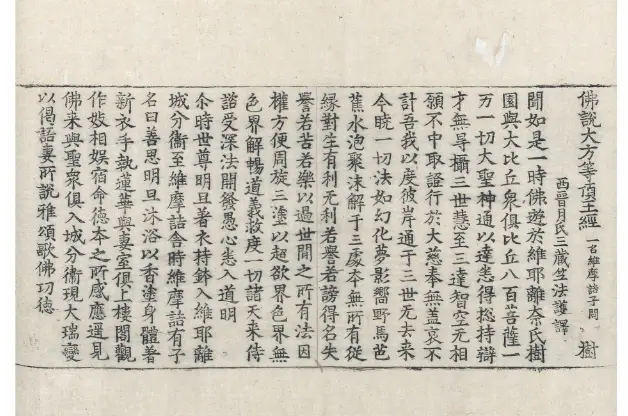 佛說大方等頂王經 一名維摩詰子問 樹
西晉月氏三藏竺法護譯
聞如是一時佛遊於維耶離奈氏樹
園與大比丘衆俱比丘八百菩薩一
万一切大聖神通以達悉得揔持辯
才無㝵攝三世慧至三達智空无相
願不中取證行於大慈奉無蓋哀不
計吾我以度彼岸通于三世无去来
今暁一切法如幻化夢影響野馬芭
蕉水泡聚沫解于三處本無所有従
縁對生有利无利若譽若謗得名失
譽若苦若樂以過世間之所有法因
權方便周旋三塗以超欲界色界無
色界解暢道義救度一切諸天来侍
諮受深法開發愚心悉入道明
尒時世尊明旦着衣持鉢入維耶離
城分衞至維摩詰舍時維摩詰有子
名曰善思明旦沐浴以香塗身體着
新衣手執蓮華與妻室俱上樓閣觀
作妓相娱宿命德本之所感應遥見
佛来與聖衆俱入城分衞現大瑞變
以偈語妻所說雅頌歌佛功德